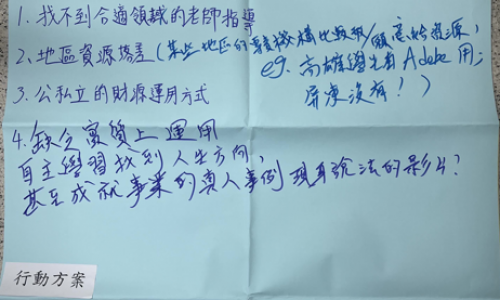 1. 找不到合適領域的老師指導
2. 地區資源落差(某些地區的專責機構比較少/願意給資源,
eg. 高雄學生有 Adobe 用;
屏東沒有!)
3. 公私立的財源運用方式
4. 缺乏實質上運用
自主學習找到人生方向,
甚至成就事業的真人事例 現身說法的影片?
行動方案